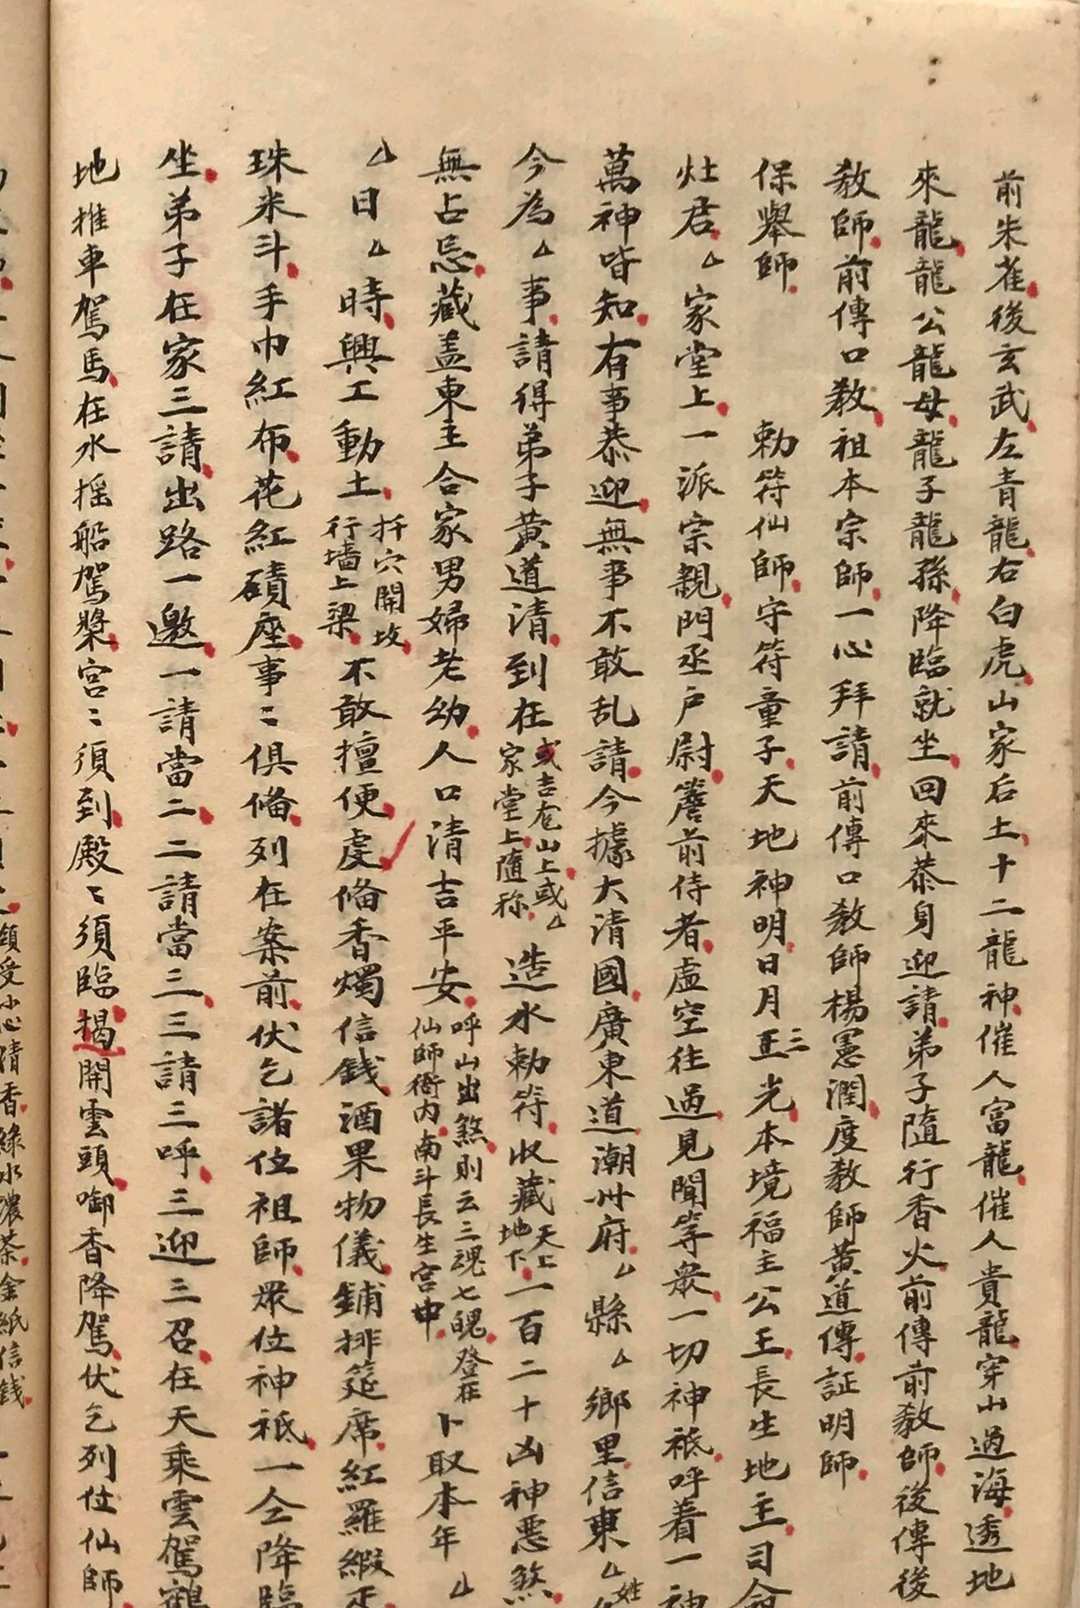 前朱雀後玄武左青龍右白虎山家后土十二龍神催人富龍催人貴龍穿山過海透地
來龍龍公龍母龍子龍孫降臨就坐回來恭身迎請弟子隨行香火前傳前教師後傳後
教師前傳口教祖本宗師一心拜請前傳口教師楊憲潤度教師黃道傳証明師
保舉師 勅符仙師守符童子天地神明日月三正光本境福主公王長生地主司命
灶君△家堂上一派宗親門丞戶尉簷前侍者虛空往過見聞等衆一切神祗呼着一神
萬神皆知有事恭迎無事不敢乱請今據大清國廣東道潮州府△縣△鄉里信東△姓
今為△事請得弟子黃道清到在或吉宅山上或△家堂上隨称造水勅符收藏天上地下一百二十凶神惡煞
無占忌藏盖東主合家男婦老幼人口清吉平安呼山出煞則云三魂七魄登在仙師衙内南斗長生宮中卜取本年△
△日△時興工動土扦穴開坟行墙上梁不敢擅便虔備香燭信錢酒果物儀鋪排筵席紅羅緞疋
珠米斗手巾紅布花紅磧座事〻俱俻列在案前伏乞諸位祖師衆位神祗一仝降臨
坐弟子在家三請出路一邀一請當二二請當三三請三呼三迎三召在天乘雲駕鶴
地推車駕馬在水摇船駕槳宮〻須到殿〻須臨揭開雲頭啣香降駕伏乞列位仙師
領受小心清香綠水濃茶金紙信錢